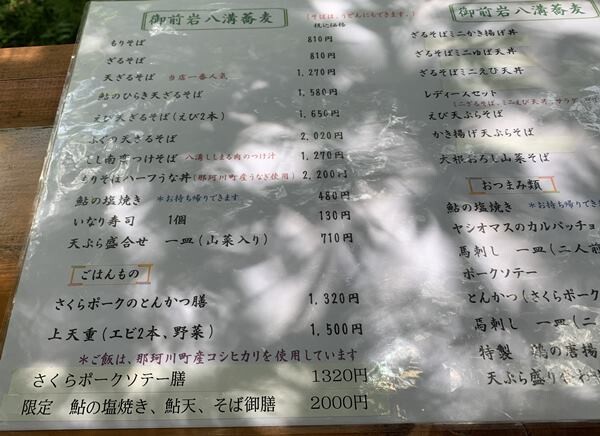 御前岩八溝蕎麦
(そばは、うどんにもできます。)
税込価格
もりそば 810円
ざるそば 810円
天ざるそば 当店一番人気 1,270円
鮎のひらき天ざるそば 1,580円
えび天ざるそば(えび2本) 1,650円
ふぐの天ざるそば 2,020円
しし南蛮つけそば 八溝ししまる肉のつけ汁 1,270円
もりそばハーフうな丼(那珂川町産うなぎ使用) 2,200円
鮎の塩焼き *お持ち帰りできます 480円
いなり寿司 1個 130円
天ぷら盛合せ 一皿(山菜入り) 710円
ごはんもの
さくらポークのとんかつ膳 1,320円
上天重(エビ2本、野菜) 1,500円
*ご飯は、那珂川町産コシヒカリを使用しています
さくらポークソテー膳 1320円
限定 鮎の塩焼き、鮎天、そば御膳 2000円
御前岩八溝蕎麦
ざるそばミニかき揚げ丼
ざるそばミニゆば天丼
ざるそばミニえび天丼
レディースセット
ミニざるそば、ミニえび天丼、サラダ、
えび天ぷらそば
かき揚げ天ぷらそば
大根おろし山菜そば
おつまみ類
鮎の塩焼き *お持ち帰り
ヤシオマスのカルパッチョ
馬刺し 一皿(二人前
ポークソテー
とんかつ(さくらポーク
馬刺し 一皿(二
特製 鶏の唐揚
天ぷら盛り合わせ